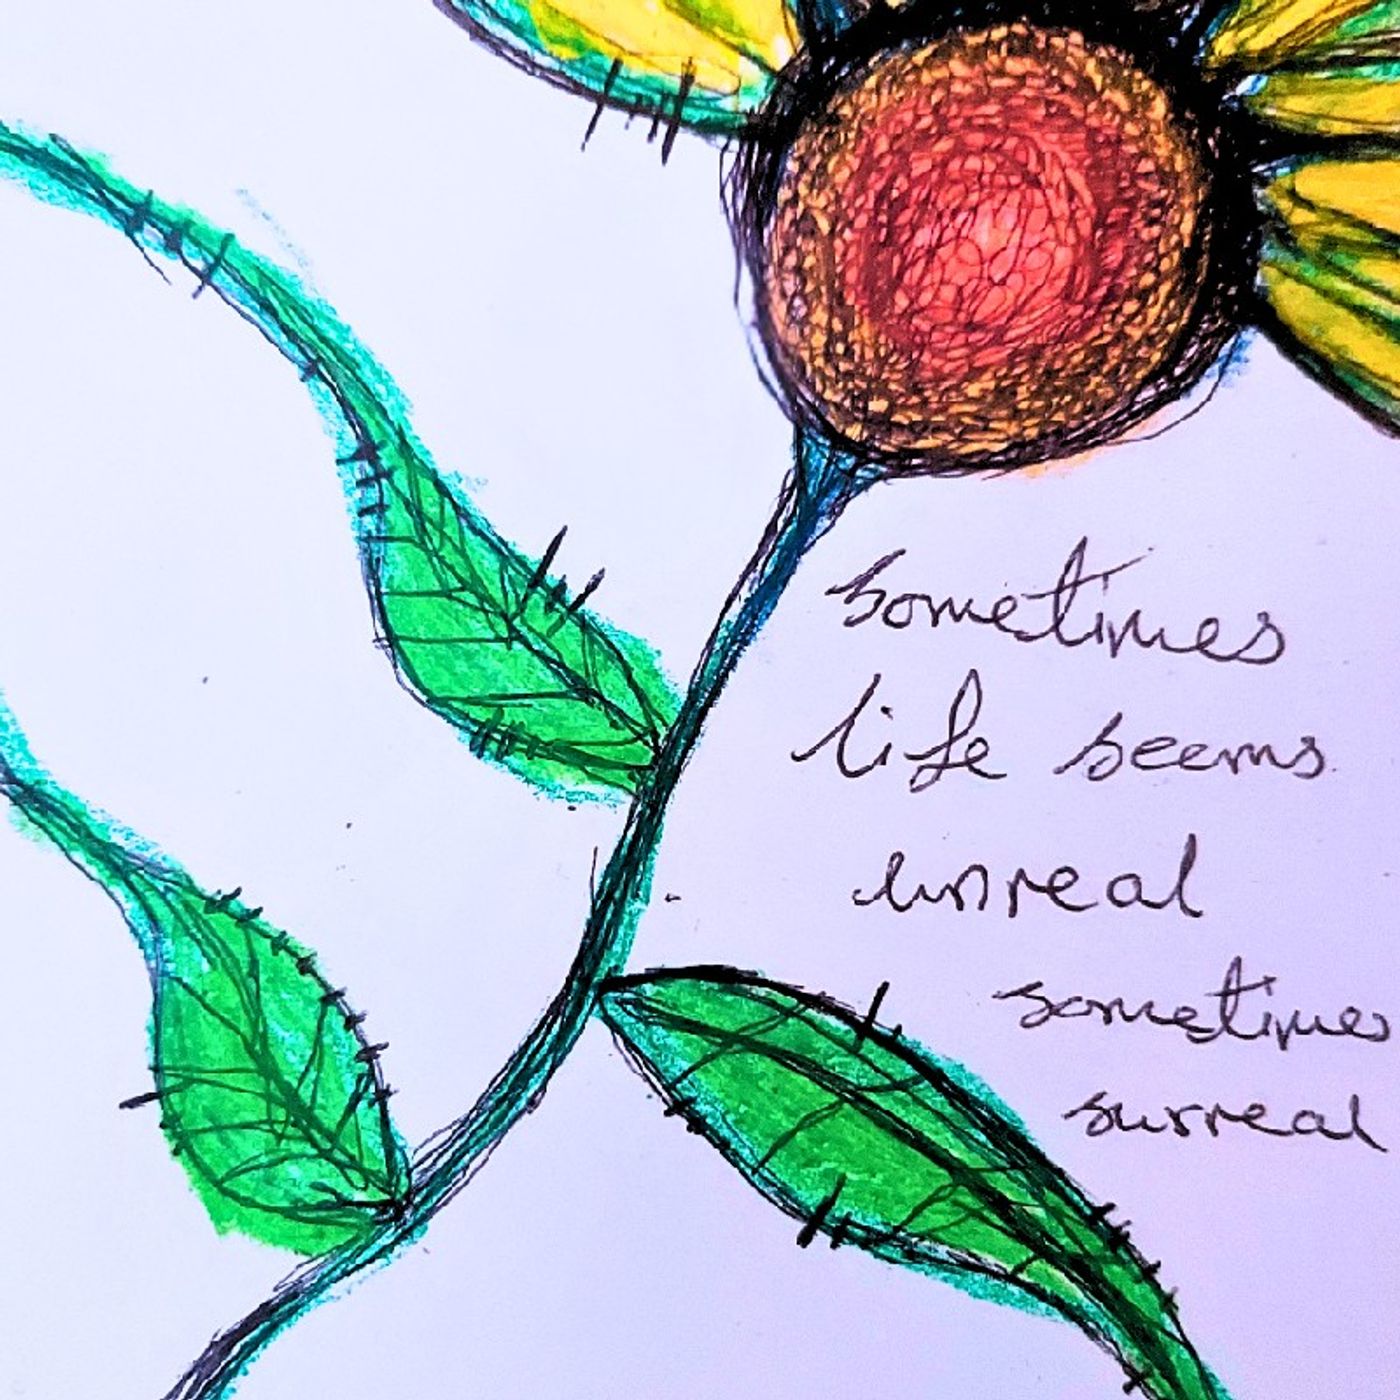 sometimes
life seems
unreal
sometimes
surreal